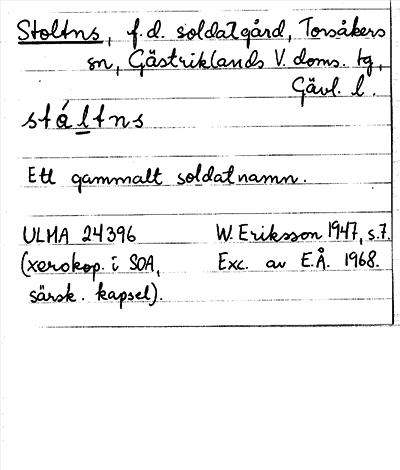 Stoltns, f.d. soldatgård, Torsåkers
sn, Gästriklands V. doms. tg,
Gävl. l.
stáltns
Ett gammalt soldatnamn.
ULMA 24396 W. Eriksson 1947, s.7.
(xerokop. i SOA, Exc. av E.Å. 1968.
särsk. kapsel).